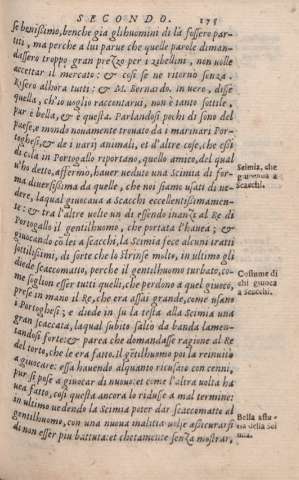 SECONDO. 175
se benissimo, benche gia gli huomini di là fossero par-
titi, ma perche a lui parue che quelle parole diman-
dassero troppo gran prezzo per i zibellini, non volle
accettar il mercato: & cosi se ne ritornò senza.
Risero allhora tutti: & M. Bernardo. in uero, disse
quella, ch'io uoglio raccontarui, non è tanto sottile,
par è bella, & è questa. Parlandosi pochi dì sono del
paese, e mondo nouamente trouato da i marinari Por-
toghesi, & de i uarij animali, et d'altre cose, che essi
di colà in Portogallo riportano, quello amico, del qual
u'ho detto, affermò, hauer ueduto una Scimia di for-
ma diuersissima da quelle, che noi siamo usati di ue-
dere, laqual giuocaua a Scacchi eccellentissimamen-
te: & tra l'altre uolte un dì essendo inanzi al Re di
Portogallo il gentilhuomo, che portata l'hauea; &
giuocando cō lei a scacchi, la Scimia fece alcuni tratti
sottilissimi, di sorte che lo strinse molto, in ultimo gli
diede scaccomatto, perche il gentilhuomo turbato, co-
me soglion esser tutti quelli, che perdono a quel giuoco,
prese in mano il Re, che era assai grande, come usano
i Portoghesi; e diede in su la testa alla Scimia una
gran scaccata, laqual subito saltò da banda lamen-
tandosi forte: & parea che domandasse ragione al Re
del torto, che le era fatto. Il gētilhuomo poi la reinuitò
a giuocare: essa hauendo alquanto ricusato con cenni,
pur si pose a giuocar di nuouo: et come l'altra uolta ha
uea fatto, così questa ancora lo ridusse a mal termine:
in ultimo uedendo la Scimia poter dar scaccomatto al
gentilhuomo, con una nuoua malitia uolse assicurarsi
di non esser piu battuta: et chetamente senza mostrar,
Scimia, che
giuocaua a
Scacchi.
Costume di
chi giuoca
a Scacchi.
Bella astu-
tia della Sci
mia.